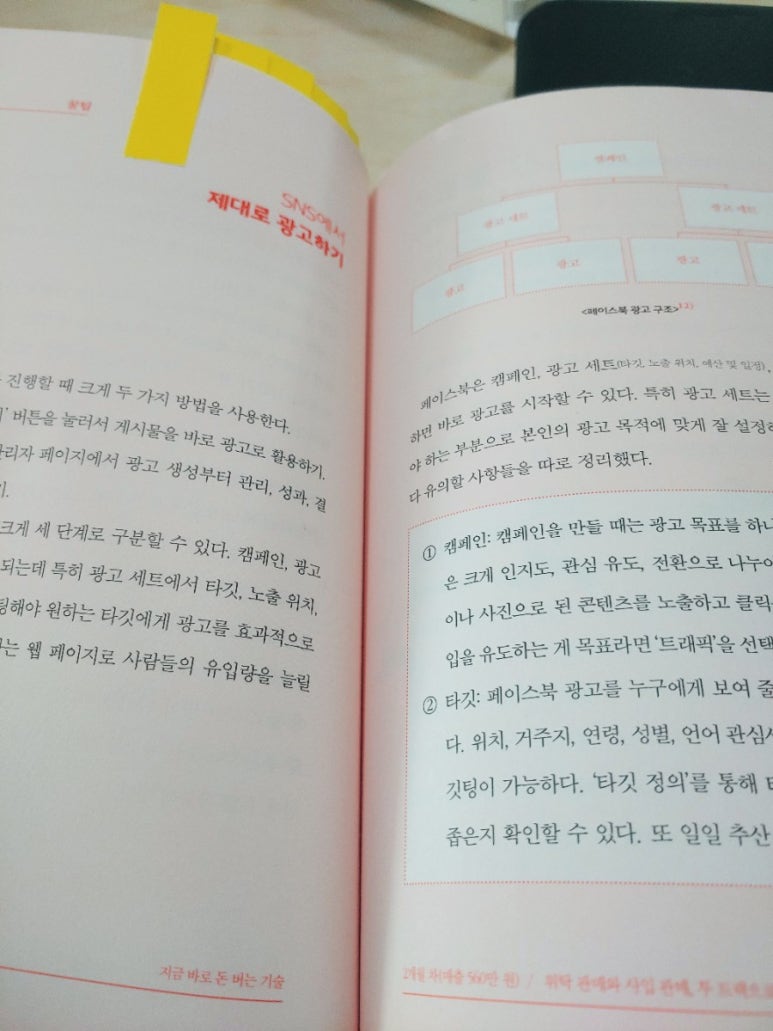 꿀팁
SNS에서
제대로 광고하기
진행할 때 크게 두 가지 방법을 사용한다.
버튼을 눌러서 게시물을 바로 광고로 활용하기.
관리자 페이지에서 광고 생성부터 관리, 성과, 결
크게 세 단계로 구분할 수 있다. 캠페인, 광고
되는데 특히 광고 세트에서 타깃, 노출 위치,
팅해야 원하는 타깃에게 광고를 효과적으로
는 웹 페이지로 사람들의 유입량을 늘릴
지금 바로 돈 버는 기술
캠페인
광고 세트
광고 세트
광고
광고
광고
<페이스북 광고 구조>12)
페이스북은 캠페인, 광고 세트(타깃, 노출 위치, 예산 및 일정),
하면 바로 광고를 시작할 수 있다. 특히 광고 세트는
야 하는 부분으로 본인의 광고 목적에 맞게 잘 설정하
다 유의할 사항들을 따로 정리했다.
① 캠페인: 캠페인을 만들 때는 광고 목표를 하나
은 크게 인지도, 관심 유도, 전환으로 나누어
이나 사진으로 된 콘텐츠를 노출하고 클릭
입을 유도하는 게 목표라면 ‘트래픽’을 선택
② 타깃: 페이스북 광고를 누구에게 보여 줄
다. 위치, 거주지, 연령, 성별, 언어 관심사
깃팅이 가능하다. ‘타깃 정의’를 통해
좁은지 확인할 수 있다. 또 일일 추산
2개월 차(매출 560만 원) / 위탁 판매와 사입 판매, 투 트랙으로